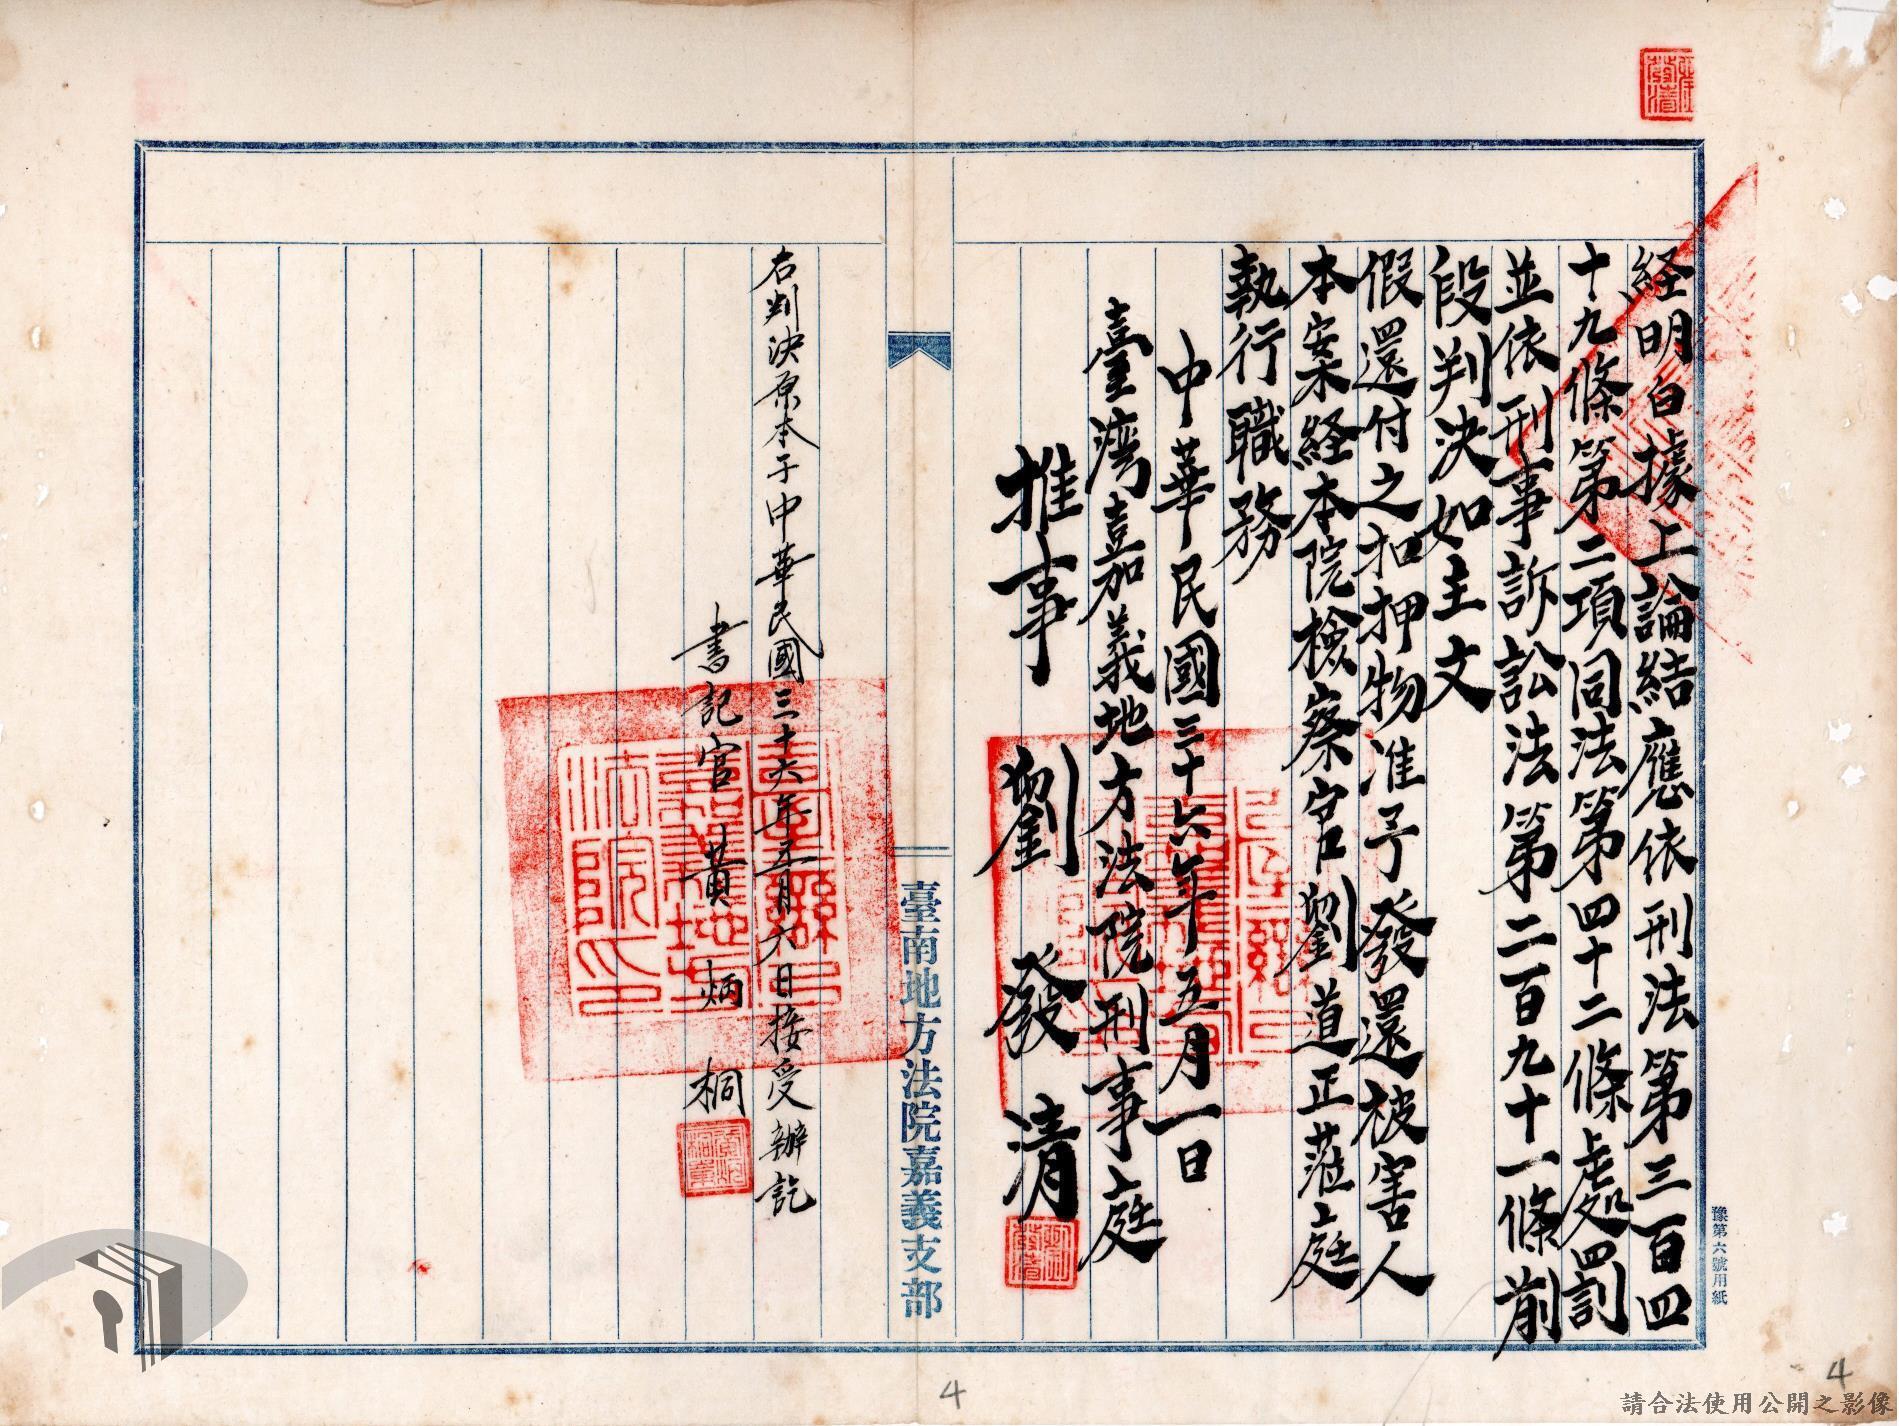 経明白據上論結應依刑法第三百四
十九條第二項同法第四十二條處罰
並依刑事訴訟法第二百九十一條前
段判決如主文
假還付之扣押物准予發還被害人
本案経本院檢察官劉道正蒞庭
執行職務
中華民國三十六年五月一日
臺灣嘉義地方法院刑事庭
推事 劉發清
臺南地方法院嘉義支部
右判決原本于中華民國三十六年五月六日接受辦訖
書記官 黃炳桐
豫第六號用紙
4
4
請合法使用公開之影像